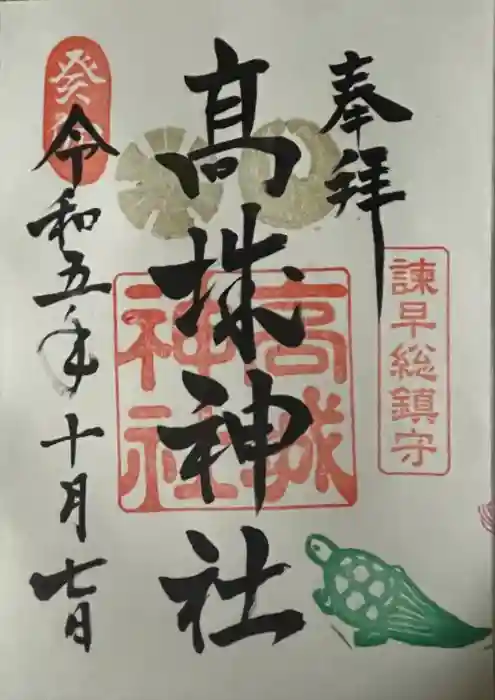 奉拝
諫早総鎮守
髙城神社
高城
神社
癸卯
令和五年十月七日